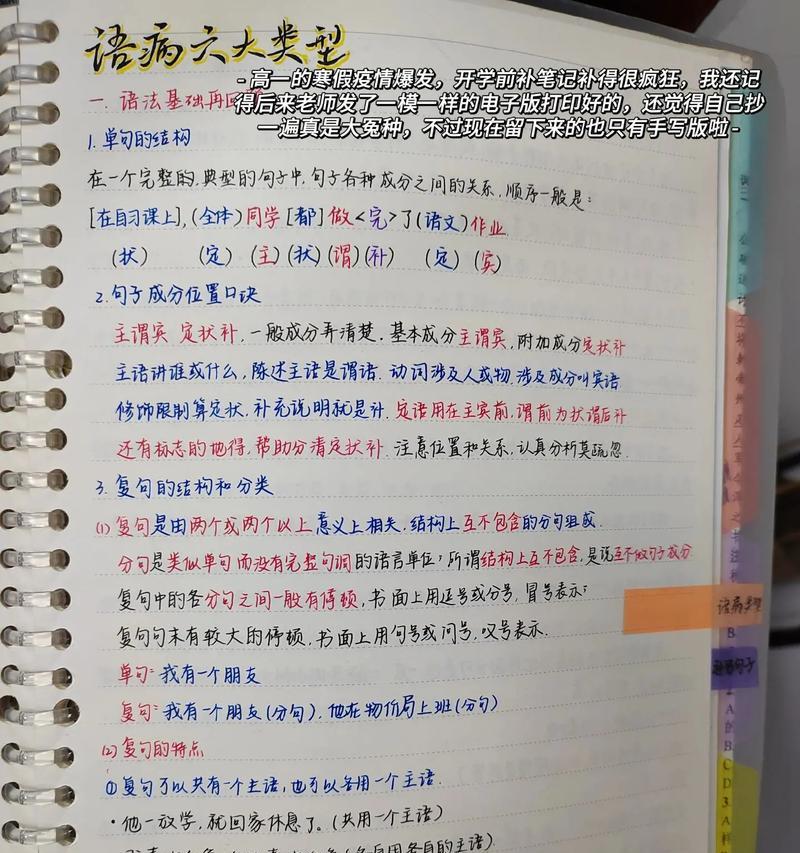 语病六大类型
- 高一的寒假疫情爆发，开学前补笔记补得很疯狂，我还记
得后来老师发了一模一样的电子版打印好的，还觉得自己抄
一遍真是大冤种，不过现在留下来的也只有手写版啦 -
一. 语法基础再回
1. 单句的结构
在一个完整的,典型的句子中,句子各种成分之间的关系,顺序一般是:
[在自习课上],(全体)同学[都]做<完>了(语文)作业
(状) (定) (主)(状)(谓)(补) (定)(宾)
2. 句子成分位置口诀
主谓宾 定状补,一般成分弄清楚.基本成分主谓宾,附加成分定状补
主语讲谁或什么,陈述主语是谓语.动词涉及人或物.涉及成分叫宾语
修饰限制算定状,补充说明就是补.定语用在主宾前,谓前为状谓后补
还有标志的地得,帮助分清定状补.注意位置和关系,认真分析莫疏忽.
3. 复句的结构和分类
(1) 复句是由两个或两个以上意义上相关.结构上互不包含的分句组成.
分句是类似单句而没有完整句调的语言单位;所谓结构上互不包含,是说互不做句子成分
复句中的各分句之间一般有停顿,书面上用逗号或分号,冒号表示;
复句句末有较大的停顿,书面上用句号或问号,叹号表示.
单句:我有一个朋友
复句:我有一个朋友(分句),他在物价局上班(分句)
(2) 复句的特点
①复句可以共有一个主语,也可以各用一个主语.
·他一放学,就回家休息了.(共用一个主语)
语病类型